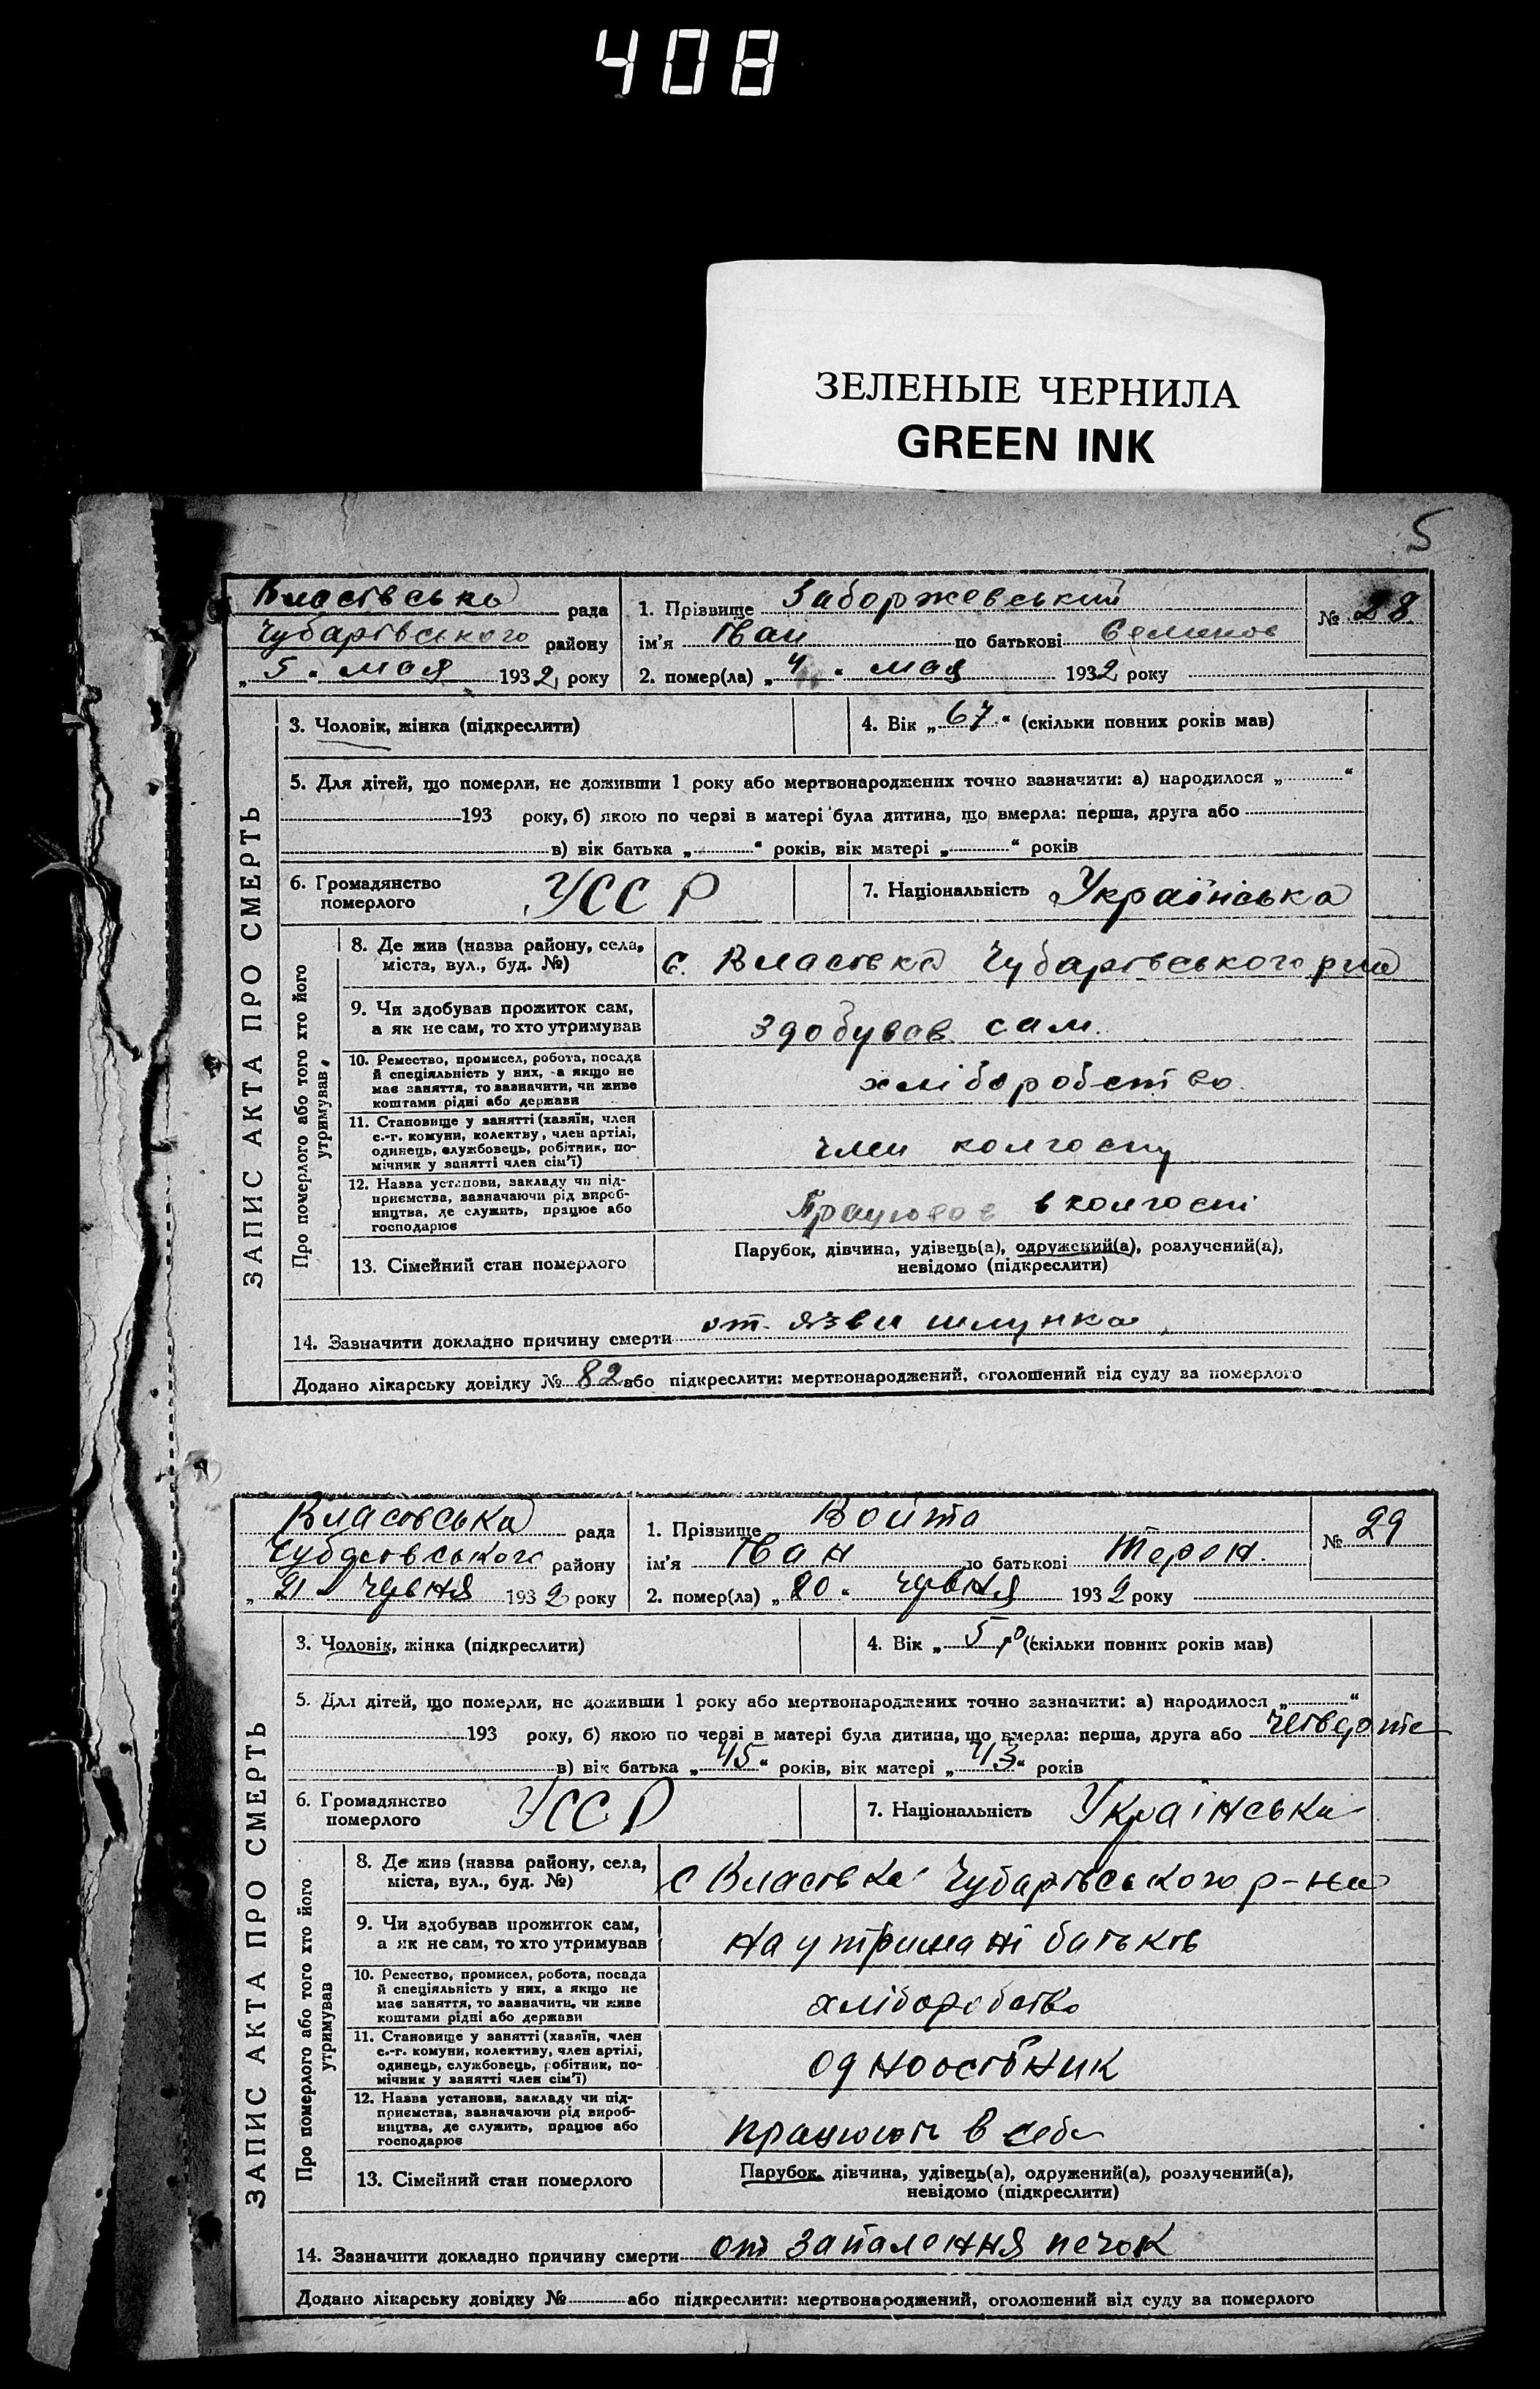 408
ЗЕЛЕНЫЕ ЧЕРНИЛА
GREEN INK
5
Власівська рада
Чубарівського району
„5“ мая 1932 року
1. Прізвище Заборжевський
ім'я Іван по батькові Семенов
2. помер(ла) „4“ мая 1932 року
№ 28
ЗАПИС АКТА ПРО СМЕРТЬ
3. Чоловік, жінка (підкреслити)
4. Вік „67“ (скільки повних років мав)
5. Для дітей, що померли, не доживши 1 року або мертвонароджених точно зазначити: а) народилося „ “
193 року, б) якою по черзі в матері була дитина, що вмерла: перша, друга або
в) вік батька „ “ років, вік матері „ “ років
6. Громадянство
померлого
УССР
7. Національність Українська
Про померлого або того хто його
утримував
8. Де жив (назва району, села,
міста, вул., буд. №)
С. Власівка Чубарівського рна
9. Чи здобував прожиток сам,
а як не сам, то хто утримував
здобував сам.
10. Ремество, промисел, робота, посада
й спеціяльність у них, а якщо не
має заняття, то зазначити, чи живе
коштами рідні або держави
хліборобство
11. Становище у занятті (хазяїн, член
с.-г. комуни, колектву, член артілі,
одинець, службовець, робітник, по-
мічник у занятті член сім'ї)
член колгоспу
12. Назва установи, закладу чи під-
приємства, зазначаючи рід вироб-
ництва, де служить, працює або
господарює
Працював в колгоспі
13. Сімейний стан померлого
Парубок, дівчина, удівець(а), одружений(а), розлучений(а),
невідомо (підкреслити)
14. Зазначити докладно причину смерти от язви шлунка
Додано лікарську довідку № 82 або підкреслити: мертвонароджений, оголошений від суду за померлого
Власівська рада
Чубарівського району
„21“ червня 1932 року
1. Прізвище Войта
ім'я Іван по батькові Терен.
2. помер(ла) „20“ червня 1932 року
№ 29
ЗАПИС АКТА ПРО СМЕРТЬ
3. Чоловік, жінка (підкреслити)
4. Вік „5 р“ (скільки повних років мав)
5. Для дітей, що померли, не доживши 1 року або мертвонароджених точно зазначити: а) народилося „ “
193 року, б) якою по черзі в матері була дитина, що вмерла: перша, друга або
в) вік батька „45“ років, вік матері „43“ років
6. Громадянство
померлого
УССР
7. Національність Українська
Про померлого або того хто його
утримував
8. Де жив (назва району, села,
міста, вул., буд. №)
С Власівка Чубарівського р-на
9. Чи здобував прожиток сам,
а як не сам, то хто утримував
на утримані батьків
10. Ремество, промисел, робота, посада
й спеціяльність у них, а якщо не
має заняття, то зазначити, чи живе
коштами рідні або держави
хліборобство
11. Становище у занятті (хазяїн, член
с.-г. комуни, колективу, член артілі,
одинець, службовець, робітник, по-
мічник у занятті член сім'ї)
одноосібник
12. Назва установи, закладу чи під-
приємства, зазначаючи рід вироб-
ництва, де служить, працює або
господарює
працюють в себе
13. Сімейний стан померлого
Парубок, дівчина, удівець(а), одружений(а), розлучений(а),
невідомо (підкреслити)
14. Зазначити докладно причину смерти от запалення печок
Додано лікарську довідку № або підкреслити: мертвонароджений, оголошений від суду за померлого